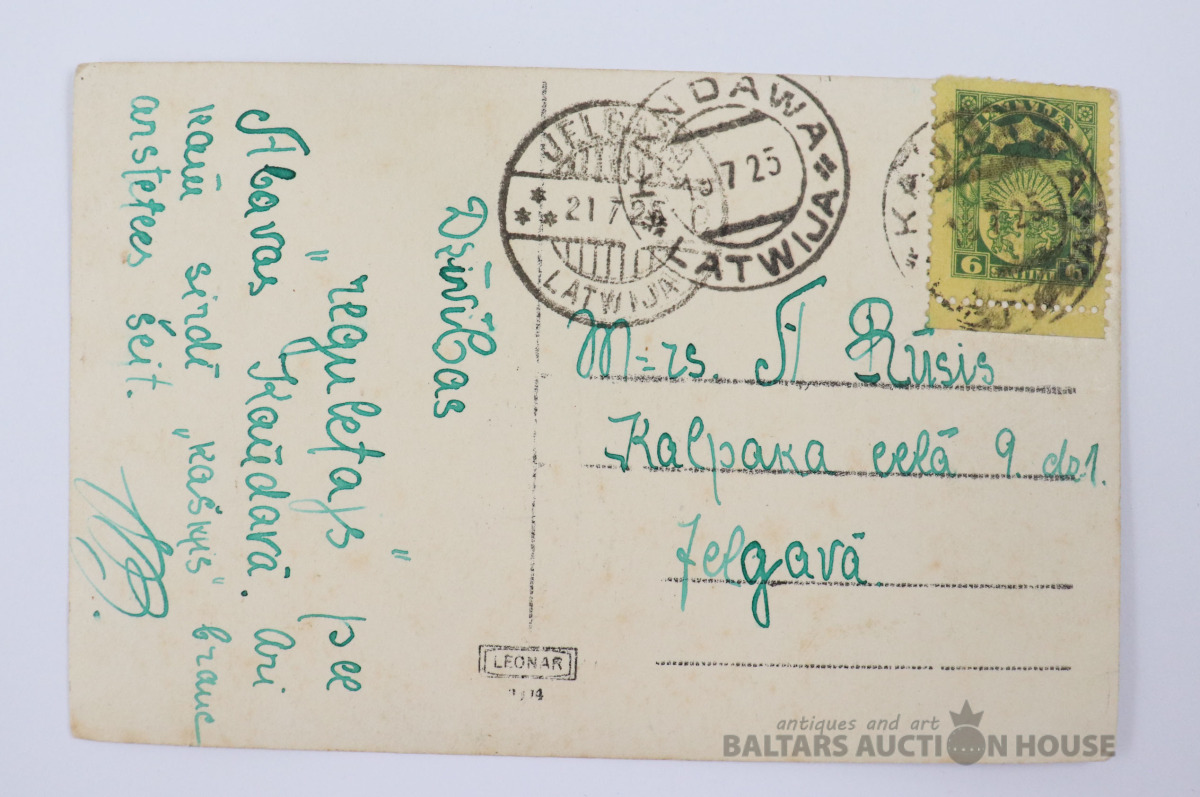 Dzīvības
„reguletajs" pee
Abavas Kaņdavā. Ari
kaŗu sirdi „kašķis" brauc
anstetees šeit.
JELGAVA
21 7 25
LATWIJA
KANDAWA
7 25
LATWIJA
LATVIJA
6 SANTIMI 6
M-rs. A Rūsis
Kalpaka celā 9. dz 1.
Jelgavā.
LEONAR
antiques and art
BALTARS AUCTION HOUSE